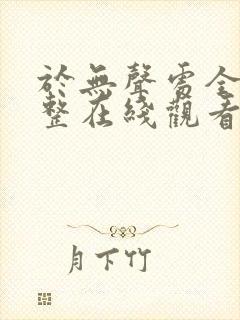 於無聲處全
整在綫觀看
月下竹